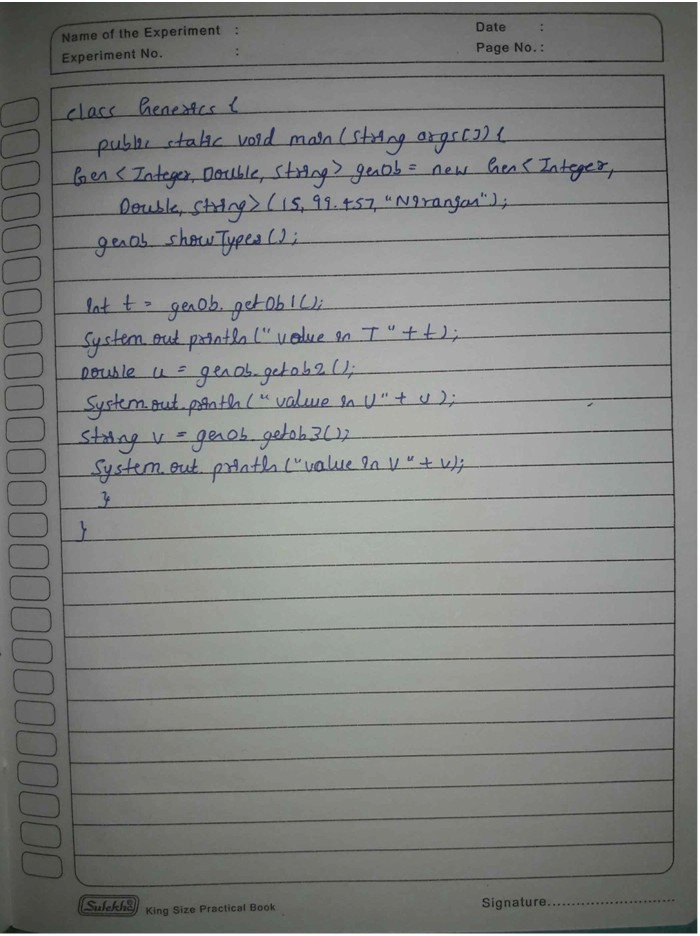 Name of the Experiment :
Date :
Experiment No. :
Page No. :
class Generics {
public static void main (String args[]) {
Gen < Integer, Double, String> genOb = new Gen < Integer,
Double, String> (15, 99.457, "Niranjan");
genOb. showTypes ();
int t = genOb. getOb1();
System. out. println (" value in T " + t);
Double u = genOb. getob2 ();
System. out. println (" value in U" + u );
String v = genOb. getob3();
System. out. println ("value in V " + v);
}
}
Sulekha King Size Practical Book
Signature